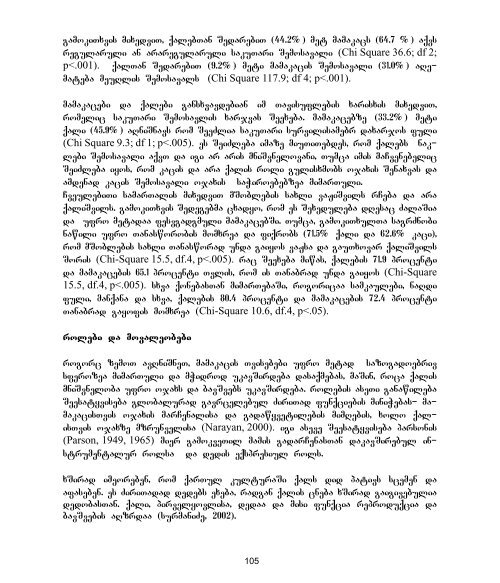 გამოკითხვის მიხედვით, ქალებთან შედარებით (44.2%) მეტ მამაკაცს (64.7 %) აქვს
რეგულარული ან არარეგულარული საკუთარი შემოსავალი (Chi Square 36.6; df 2;
p<.001). ქალთან შედარებით (9.2%) მეტი მამაკაცის შემოსავალი (31.0%) აღე-
მატება მეუღლის შემოსავალს (Chi Square 117.9; df 4; p<.001).

მამაკაცები და ქალები განსხვავდებიან იმ თავისუფლების ხარისხის მიხედვით,
რომელიც საკუთარი შემოსავლის ხარჯვას შეეხება. მამაკაცებზე (33.2%) მეტი
ქალი (45.9%) აღნიშნავს რომ შეუძლია საკუთარი სურვილისამებრ დახარჯოს ფული
(Chi Square 9.3; df 1; p<.005). ეს შეიძლება იმაზე მიუთითებდეს, რომ ქალებს ნაკ-
ლები შემოსავალი აქვთ და იგი არ არის მნიშვნელოვანი, თუმცა იმის მაჩვენებელიც
შეიძლება იყოს, რომ კაცის და არა ქალის როლი გულისხმობს ოჯახის შენახვას და
ამდენად კაცის შემოსავალი ოჯახის საჭიროებებზეა მიმართული.
ჩვეულებითი სამართალის მიხედვით მშობლების სახლი ვაჟიშვილს რჩება და არა
ქალიშვილს. გამოკითხვის შედეგებმა ცხადყო, რომ ეს შეხედულება დღესაც ძალაშია
და უფრო მეტადაა ფესვგადგმული მამაკაცებში. თუმცა, გამოკითხულთა საგრძნობი
ნაწილი უფრო თანასწორობის მომხრეა და ფიქრობს (71.5% ქალი და 62.6% კაცი),
რომ მშობლების სახლი თანასწორად უნდა გაიყოს ვაჟსა და გაუთხოვარ ქალიშვილს
შორის (Chi-Square 15.5, df.4, p<.005). რაც შეეხება მიწას, ქალების 71.9 პროცენტი
და მამაკაცების 65.1 პროცენტი თვლის, რომ ის თანაბრად უნდა გაიყოს (Chi-Square
15.5, df.4, p<.005). სხვა ქონებასთან მიმართებაში, როგორიცაა სამკაულები, ნაღდი
ფული, მანქანა და სხვა, ქალების 80.4 პროცენტი და მამაკაცების 72.4 პროცენტი
თანაბრად გაყოფის მომხრეა (Chi-Square 10.6, df.4, p<.05).

როლები და მოვალეობები

როგორც ზემოთ ავღნიშნეთ, მამაკაცის თვისებები უფრო მეტად საზოგადოებრივ
სფეროზეა მიმართული და მჭიდროდ უკავშირდება დასაქმებას, მაშინ, როცა ქალის
მნიშვნელობა უფრო ოჯახს და ბავშვებს უკავშირდება. როლების ასეთი განაწილება
შეესატყვისება გლობალურად გავრცელებულ ძირითად ფუნქციების მინიჭებას- მა-
მაკაცისთვის ოჯახის მარჩენალისა და გადაწყვეტილების მიმღების, ხოლო ქალ-
ისთვის ოჯახზე მზრუნველისა (Narayan, 2000). იგი ასევე შეესატყვისება პარსონის
(Parson, 1949, 1965) მიერ გამოკვეთილ მამის გადარჩენასთან დაკავშირებულ ინ-
სტრუმენტალურ როლსა და დედის ექსპრესიულ როლს.

ხშირად იმეორებენ, რომ ქართულ კულტურაში ქალს დიდ პატივს სცემენ და
აფასებენ. ეს ძირითადად დედებს ეხება, რადგან ქალის ცნება ხშირად გაიგივებულია
დედობასთან. ქალი, პირველყოვლისა, დედაა და მისი ფუნქცია რეპროდუქცია და
ბავშვების აღზრდაა (სურმანიძე, 2002).

105